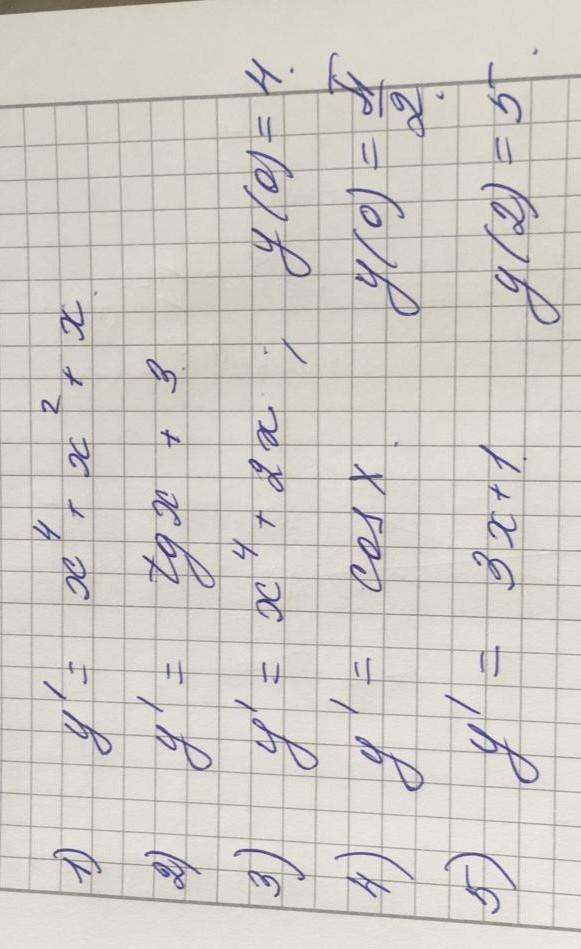 1) y' = x⁴ + x² + x.
2) y' = tg x + 3.
3) y' = x⁴ + 2x ; y(0) = 4.
4) y' = cos x. y(0) = /2.
5) y' = 3x+1. y(2) = 5.